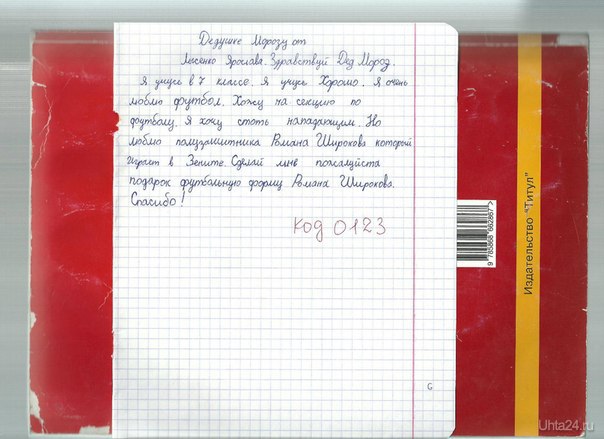 Дедушке Морозу от
Лысенко Ярослава. Здравствуй Дед Мороз.
Я учусь в 7 классе. Я учусь Хорошо. Я очень
люблю футбол. Хожу на секцию по
футболу. Я хочу стать нападающим. Но
люблю полузащитника Романа Широкова который
играет в Зените. Сделай мне пожалуйста
подарок футбольную форму Романа Широкова.
Спасибо!
Код 0123
6
9 785868 662867 >
Издательство "Титул"
Uhta24.ru